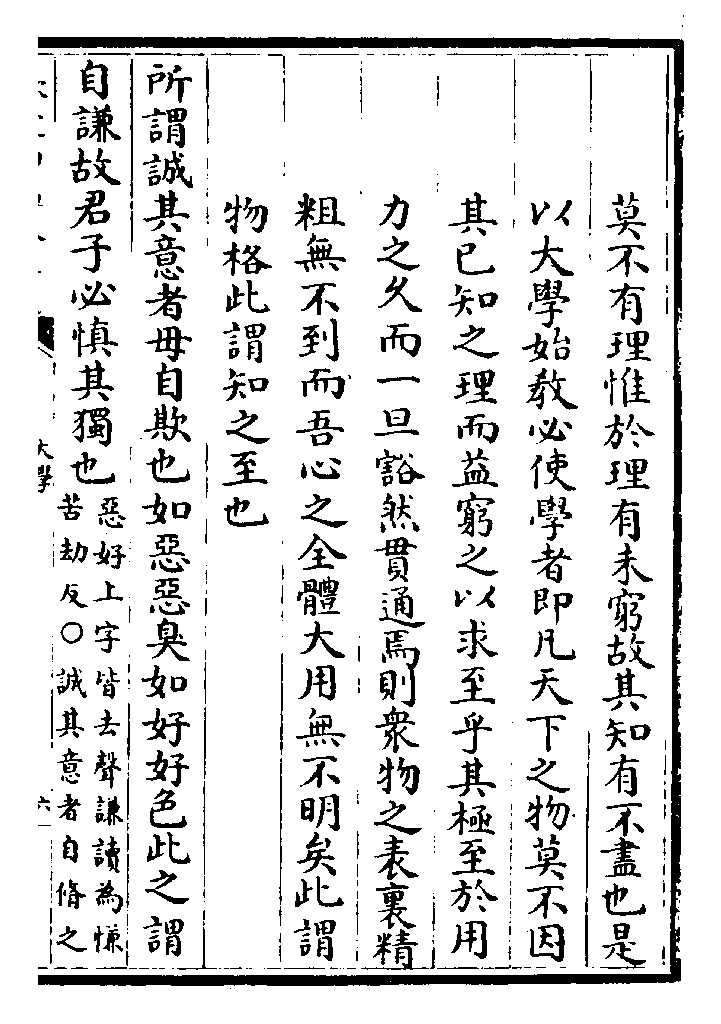 莫不有理惟於理有未窮故其知有不盡也是
以大學始教必使學者即凡天下之物莫不因
其已知之理而益窮之以求至乎其極至於用
力之久而一旦豁然貫通焉則衆物之表裏精
粗無不到而吾心之全體大用無不明矣此謂
物格此謂知之至也
所謂誠其意者毋自欺也如惡惡臭如好好色此之謂
自謙故君子必慎其獨也
惡好上字皆去聲謙讀為慊
苦劫反〇誠其意者自脩之
大學
六